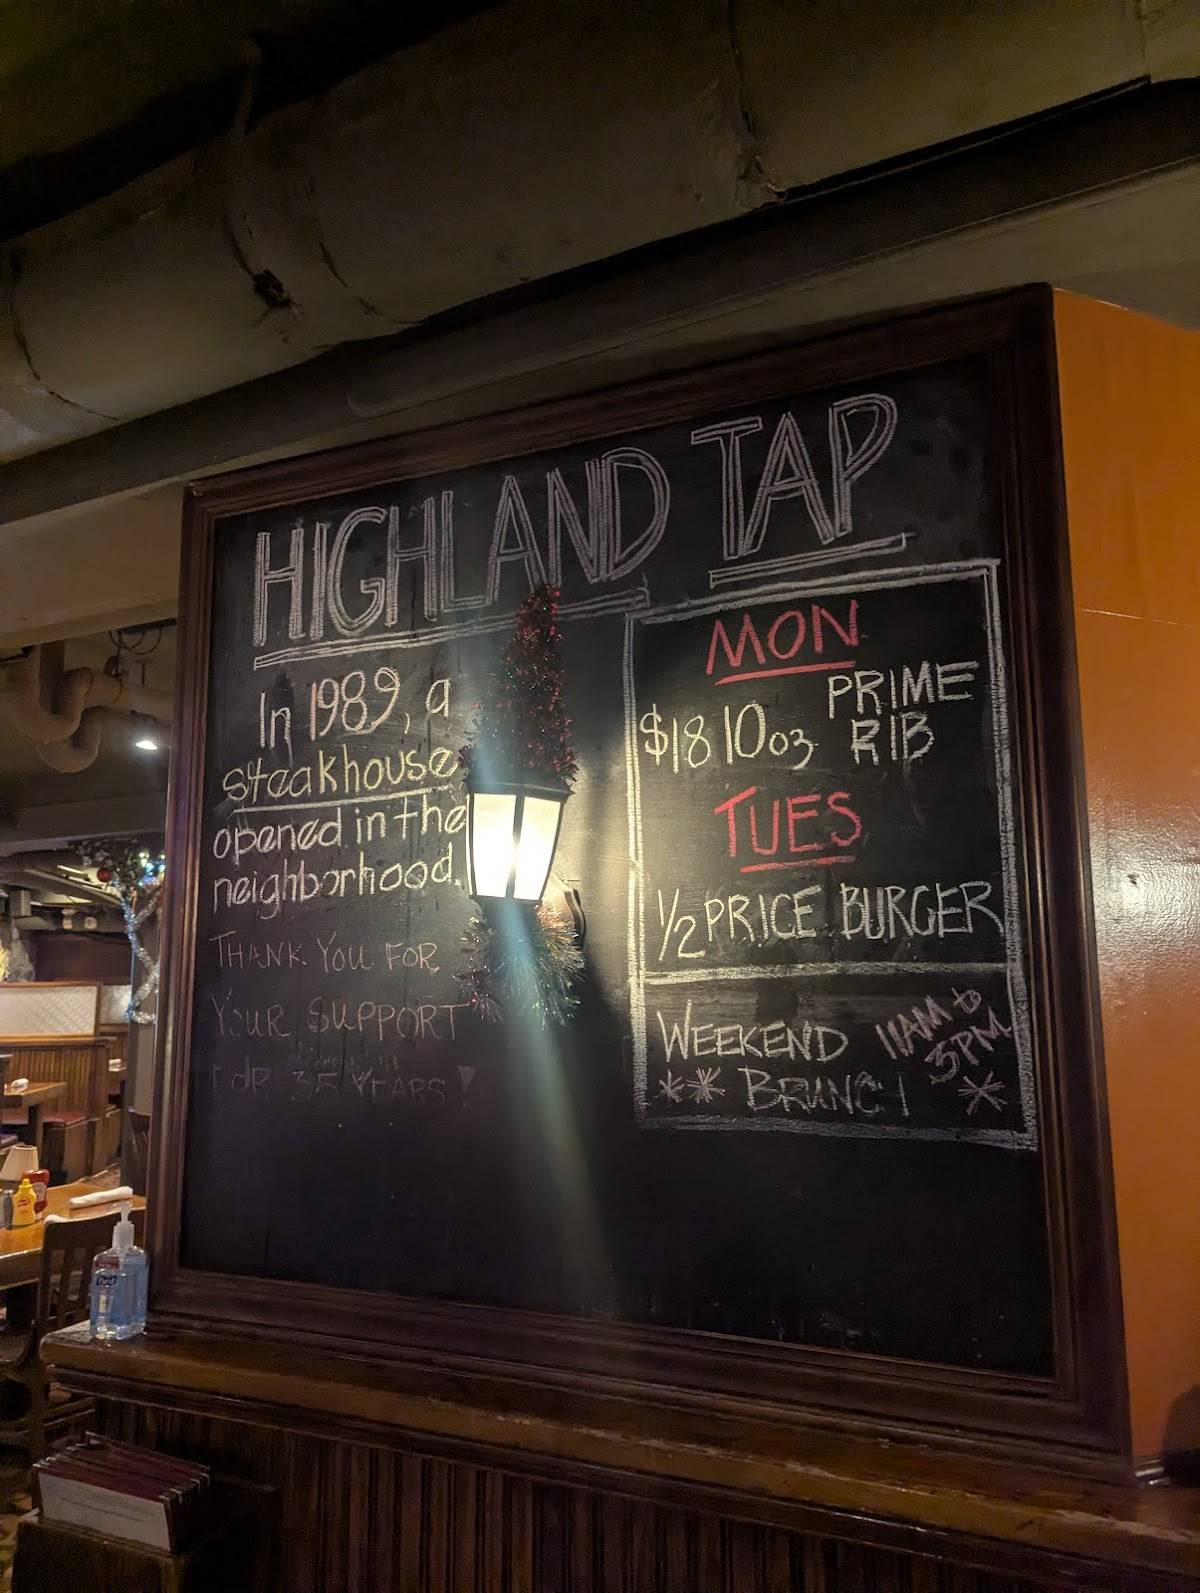 HIGHLAND TAP
In 1989, a
steakhouse
opened in the
neighborhood.
THANK YOU FOR
YOUR SUPPORT
FOR 35 YEARS!
MON
$18 10oz PRIME
RIB
TUES
1/2 PRICE BURGER
WEEKEND
** BRUNCH *
11AM to
3PM